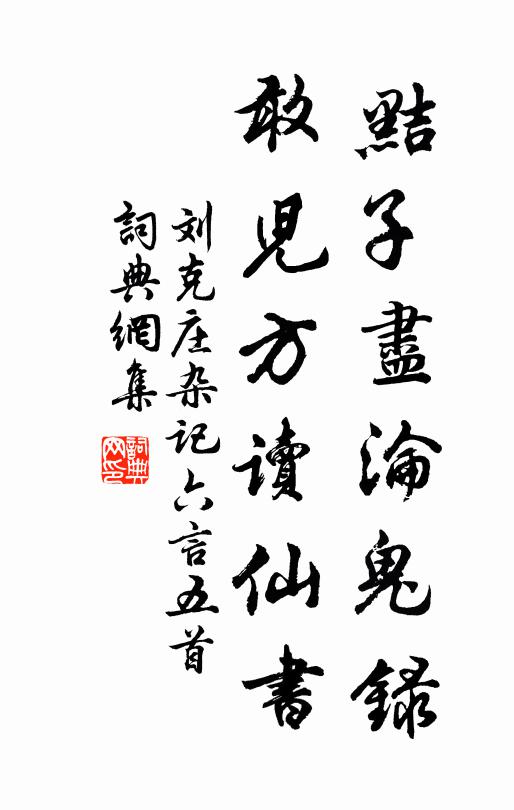 黠子盡淪鬼錄
敢児方讀仙書
刘克庄杂记六言五首
詞典網集
詞典网印